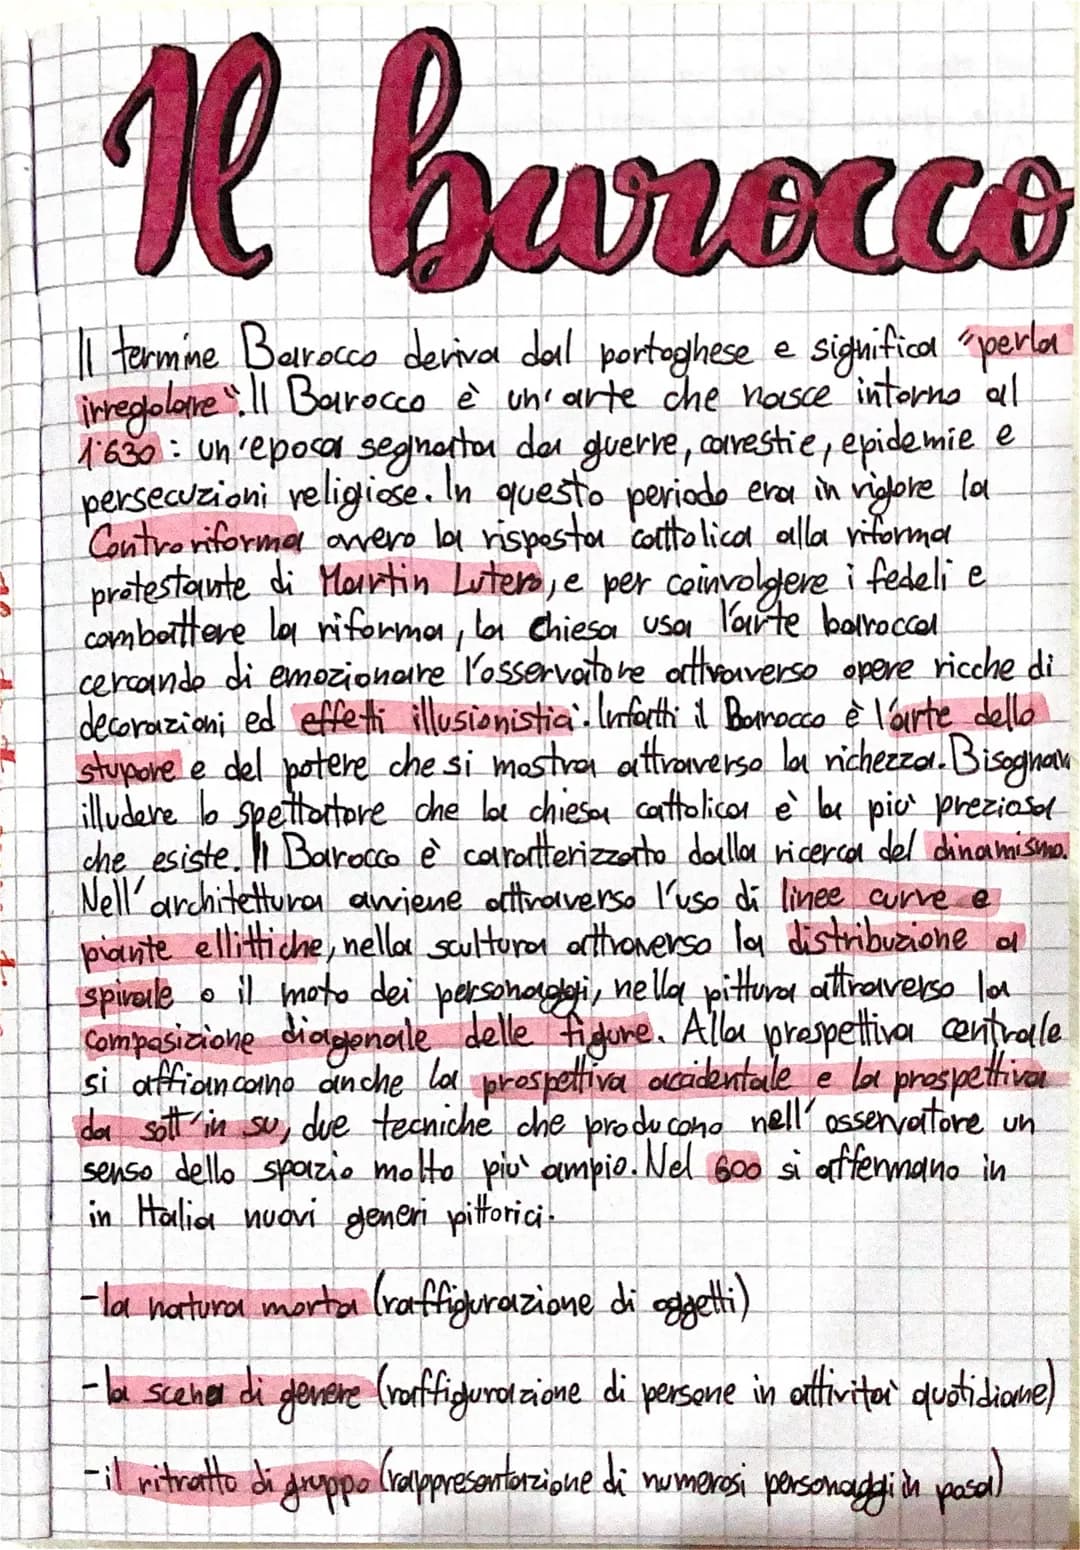 Il barocco
Il termine Barocco deriva dal portoghese e significa "perla
irregolare". Il Barocco è un'arte che nasce intorno al
1'630: un'epoca segnata da guerre, carestie, epidemie e
persecuzioni religiose. In questo periodo era in vigore la
Controriforma ovvero la risposta cattolica alla riforma
protestante di Martin Lutero, e per coinvolgere i fedeli e
combattere la riforma, la Chiesa usa l'arte barocca
cercando di emozionare l'osservatore attraverso opere ricche di
decorazioni ed effetti illusionistici. Infatti il Barocco è l'arte dello
stupore e del potere che si mostra attraverso la richezza. Bisognava
illudere lo spettatore che la chiesa cattolica è la più preziosa
che esiste. Il Barocco è caratterizzato dalla ricerca del dinamismo.
Nell'architettura avviene attraverso l'uso di linee curve e
piante ellittiche, nella scultura attraverso la distribuzione a
spirale o il moto dei personaggi, nella pittura attraverso la
composizione diagonale delle figure. Alla prospettiva centrale
si affiancano anche la prospettiva accidentale e la prospettiva
da sott'in su, due tecniche che producono nell'osservatore un
senso dello spazio molto più ampio. Nel 600 si affermano in
in Italia nuovi generi pittorici.
-la natura morta (raffigurazione di oggetti)
-la scena di genere (raffigurazione di persone in attività quotidiane)
-il ritratto di gruppo (rappresentazione di numerosi personaggi in posa)